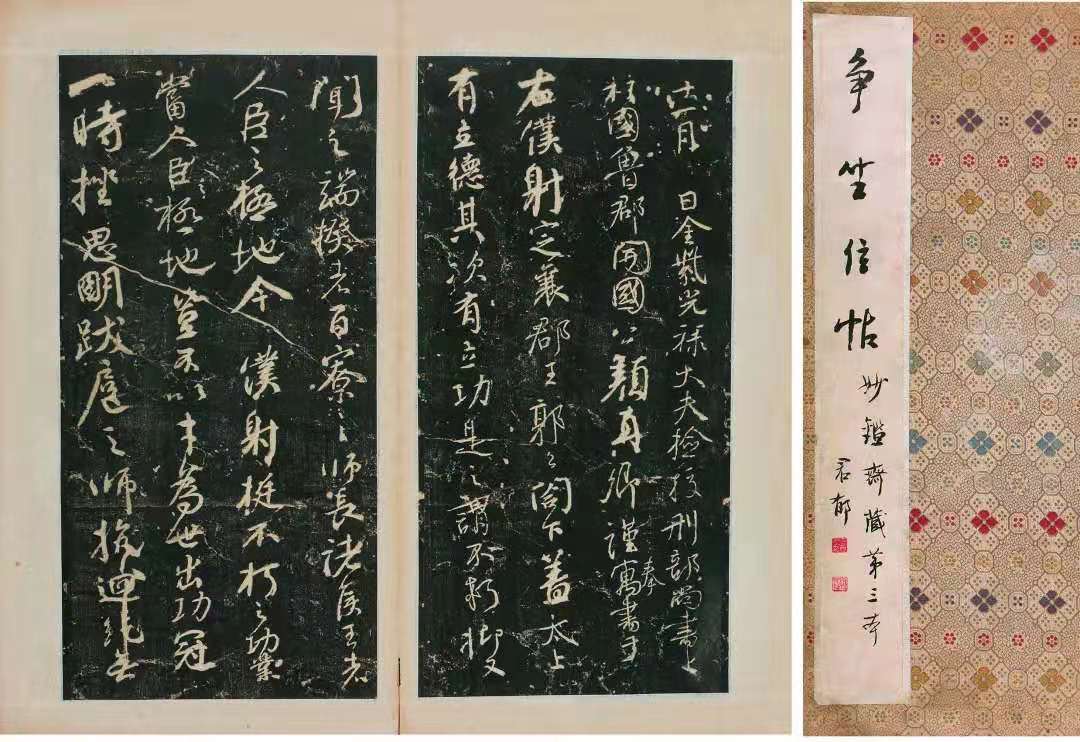 十一月　日金紫光祿大夫檢校刑部尚書上
柱國魯郡開國公顏真卿謹奉寓書于
右僕射定襄郡王郭公閤下蓋太上
有立德其次有立功是之謂不朽抑又
聞之端揆者百寮之師長諸侯王者
人臣之極地今　僕射挺不朽之功業
當人臣之極地豈不以才為世出功冠
一時挫思明跋扈之師抗迴紇無
爭坐信帖
妙鑑齋藏第三本
君郁